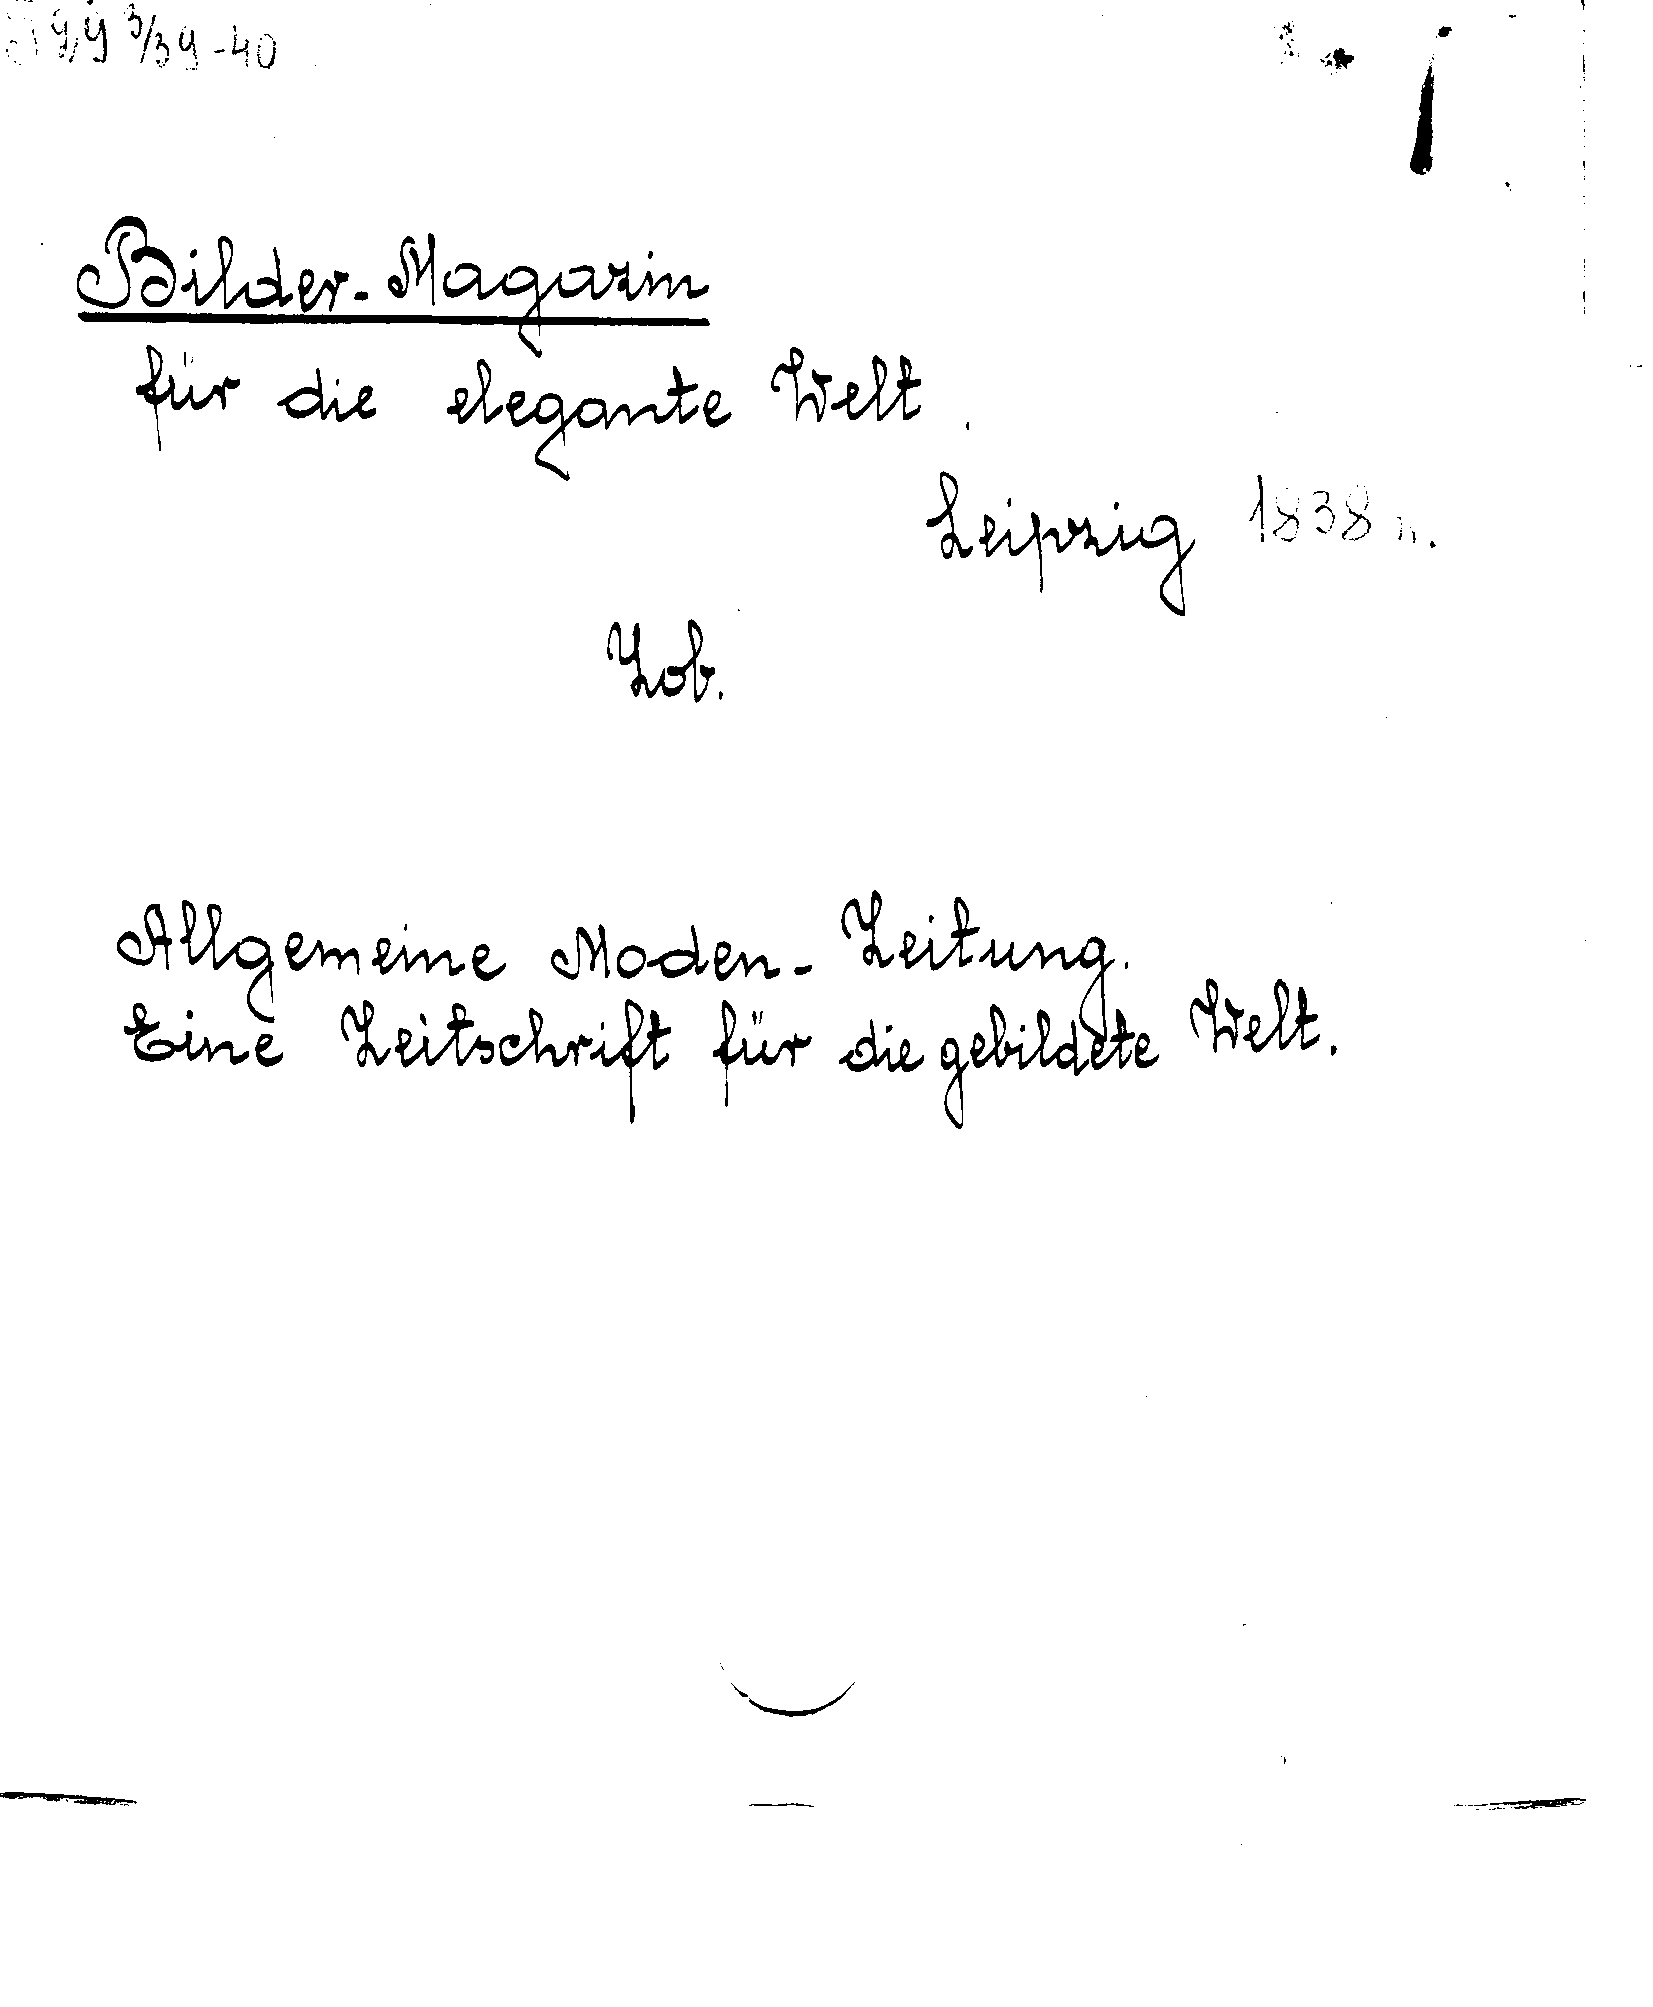 3/39-40
Bilder-Magazin
für die elegante Welt.
Leipzig 1838 n.
Zob.
Allgemeine Moden-Zeitung.
Eine Zeitschrift für die gebildete Welt.